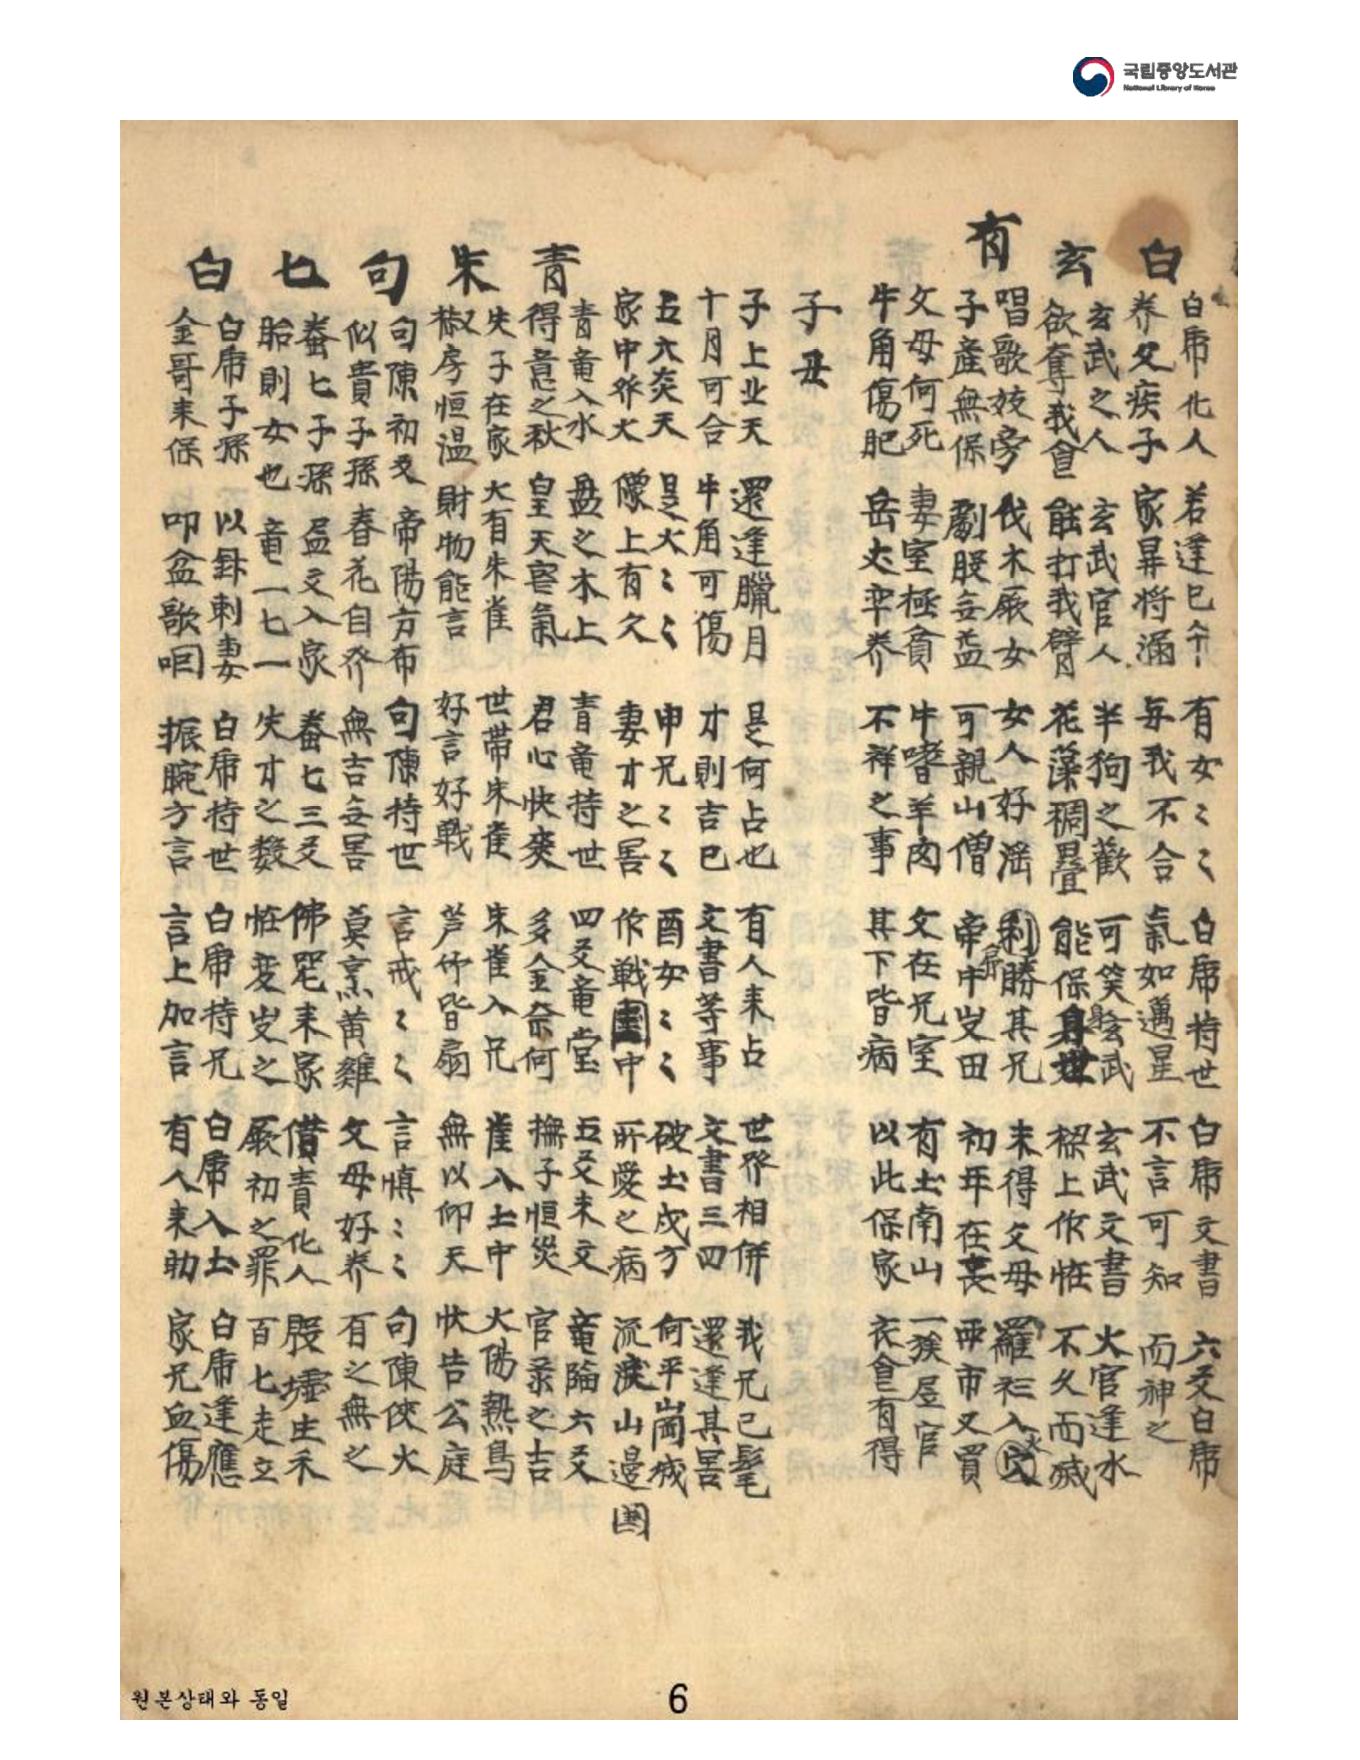 국립중앙도서관
National Library of Korea
白
白席化人 若逢巳午 有女〻〻 白席持世 白席文書 六爻白席
养父疾子 家畀将滿 与我不合 氣如邁星 不言可知 而神之
玄
玄武之人 玄武官人 羊狗之歡 可笑玄武 玄武文書 火官逢水
欲奪我食 能打我臂 花藻稠疊 能保身世 樑上作恠 不久而滅
有
唱歌妓旁 伐木厥女 女人好滛 利勝其兄 未得父母 羅衫入
子産無保 劚股無益 可親山僧 帝中岁田 初年在喪 西市又買
父母何死 妻室極貧 牛嗜羊肉 文在兄室 有土南山 一族居官
牛角傷肥 岳丈卒养 不祥之事 其下皆病 以此保家 衣食有得
子丑
子上业天 還逢臘月 是何占也 有人来占 世癸相併 我兄已髦
十月可合 牛角可傷 才則吉巳 文書等事 文書三四 還逢其害
五六炎天 是火〻〻 申兄〻〻 酉女〻〻 破土戍方 何平崗城
家中癸火 儍上有久 妻才之害 作戦中 所愛之病 流淚山邊
青
青竜入水 盘之木上 青竜持世 四爻竜堂 五爻来文 竜臨六爻
得意之秋 皇天寒氣 君心快爽 多金奈何 撫子恒災 官录之吉
朱
失子在家 大有朱雀 世帶朱雀 朱雀入兄 雀入土中 大陽熱鳥
椒房恒温 財物能言 好言好戦 芦作皆扇 無以仰天 快告公庭
句
句陳初爻 帝陽方布 句陳持世 言戒〻〻 言慎〻〻 句陳俠火
似貴子孫 春花自癸 無吉無害 莫烹黄雞 父母好养 有之無之
匕
螣匕子孫 孟文入家 螣匕三爻 佛咒来家 借責化人 股墟生禾
胎則女也 竜一匕一 失才之数 恠変岁之 厥初之罪 百匕走立
白
白席子孫 以針刺妻 白席持世 白席持兄 白席入土 白席逢應
金哥来保 叩盆歌咽 振腕方言 言上加言 有人来助 家兄血傷
원본상태와 동일
6